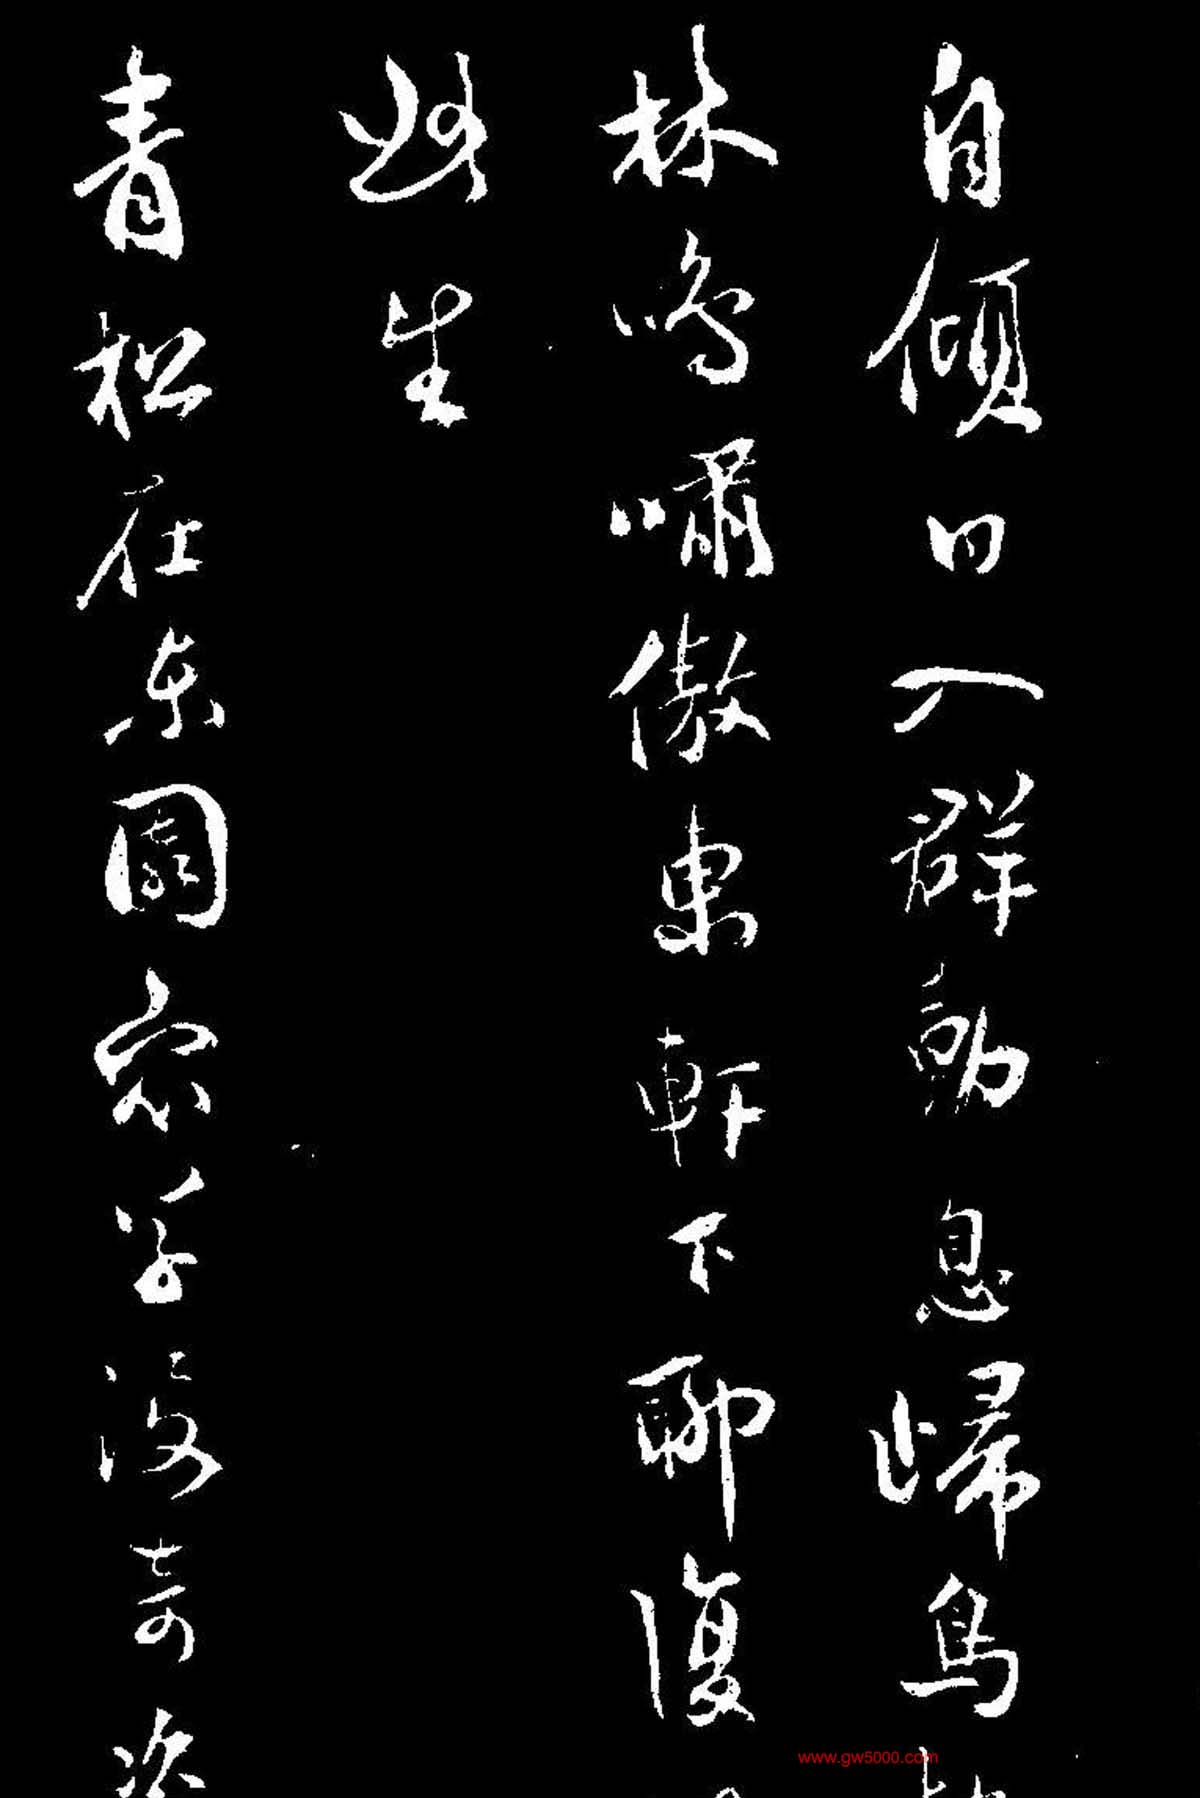 自傾日入群動息歸鳥
林鳴嘯傲東軒下聊復
此生
青松在東園衆草沒奇姿
www.gw5000.com